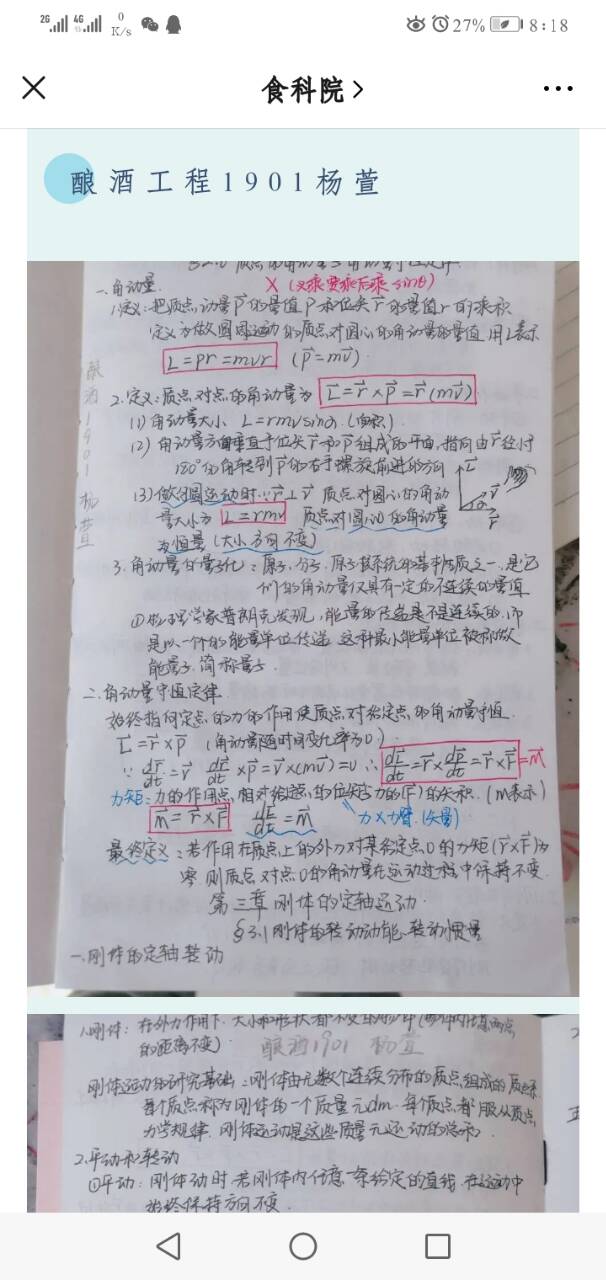 2G 4G 0 K/s 27% 8:18
食科院 >
酿酒工程1901杨萱
一、角动量. × (叉乘要乘后乘 sinθ)
1.定义:把质点动量P⃗的量值P和位矢r⃗的量值r的乘积
定义为做圆周运动的质点对圆心的角动量的量值 用L表示
L=pr=mvr (P⃗=mv⃗)
2.定义:质点对点的角动量为 L⃗=r⃗×P⃗=r⃗(mv⃗)
(1) 角动量大小 L=rmvsinα.(面积)
(2) 角动量方向垂直于位矢r⃗和P⃗组成的平面,指向由r⃗经小于
180°的角转到P⃗的右手螺旋前进的方向
L⃗
v⃗
α
r⃗
(3) 做匀圆运动时∵r⃗⊥v⃗ 质点对圆心的角动
量大小为 L=rmv 质点对圆心O的角动量
为恒量(大小.方向不变)
3.角动量的量子化:原子、分子、原子核系统的基本性质之一,是它
们的角动量仅具有一定的不连续的量值
①物理学家普朗克发现,能量的传递是不是连续的,而
是以一个个的能量单位传递 这种最小能量单位被称做
能量子,简称量子.
二、角动量守恒定律
始终指向定点的力的作用使质点对给定点的角动量守恒.
L⃗=r⃗×P⃗ (角动量随时间变化率为0)
∵ dr⃗/dt=v⃗ dr⃗/dt×P⃗=v⃗×(mv⃗)=0 ∴ dL⃗/dt=r⃗×dp⃗/dt=r⃗×F⃗=m⃗
力矩:力的作用点相对给定点的位矢与力的(F⃗)的矢积.(m表示)
m⃗=r⃗×F⃗ dL⃗/dt=m⃗ 力×力臂.(矢量)
最终定义:若作用在质点上的外力对某给定点O的力矩(r⃗×F⃗)为
零 则质点对点O的角动量在运动过程中保持不变.
第三章 刚体的定轴运动.
§3.1 刚体的转动动能、转动惯量
一、刚体的定轴转动
酿酒1901 杨萱
1.刚体:在外力作用下.大小和形状都不变的
的距离不变)
酿酒1901 杨萱
刚体运动的研究基础:刚体由无数个连续分布的质点组成的质点系
每个质点称为刚体的一个质量元dm.每个质点都服从质点
力学规律.刚体运动是这些质量元运动的总和
2.平动和转动
①平动:刚体动时.若刚体内任意一条给定的直线.在运动中
始终保持方向不变.